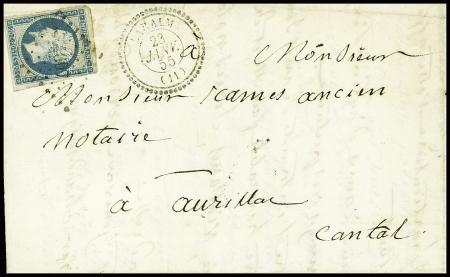 23
JANV.
55
(11)
à Monsieur
Monsieur rames ancien
notaire
à Aurillac
Cantal